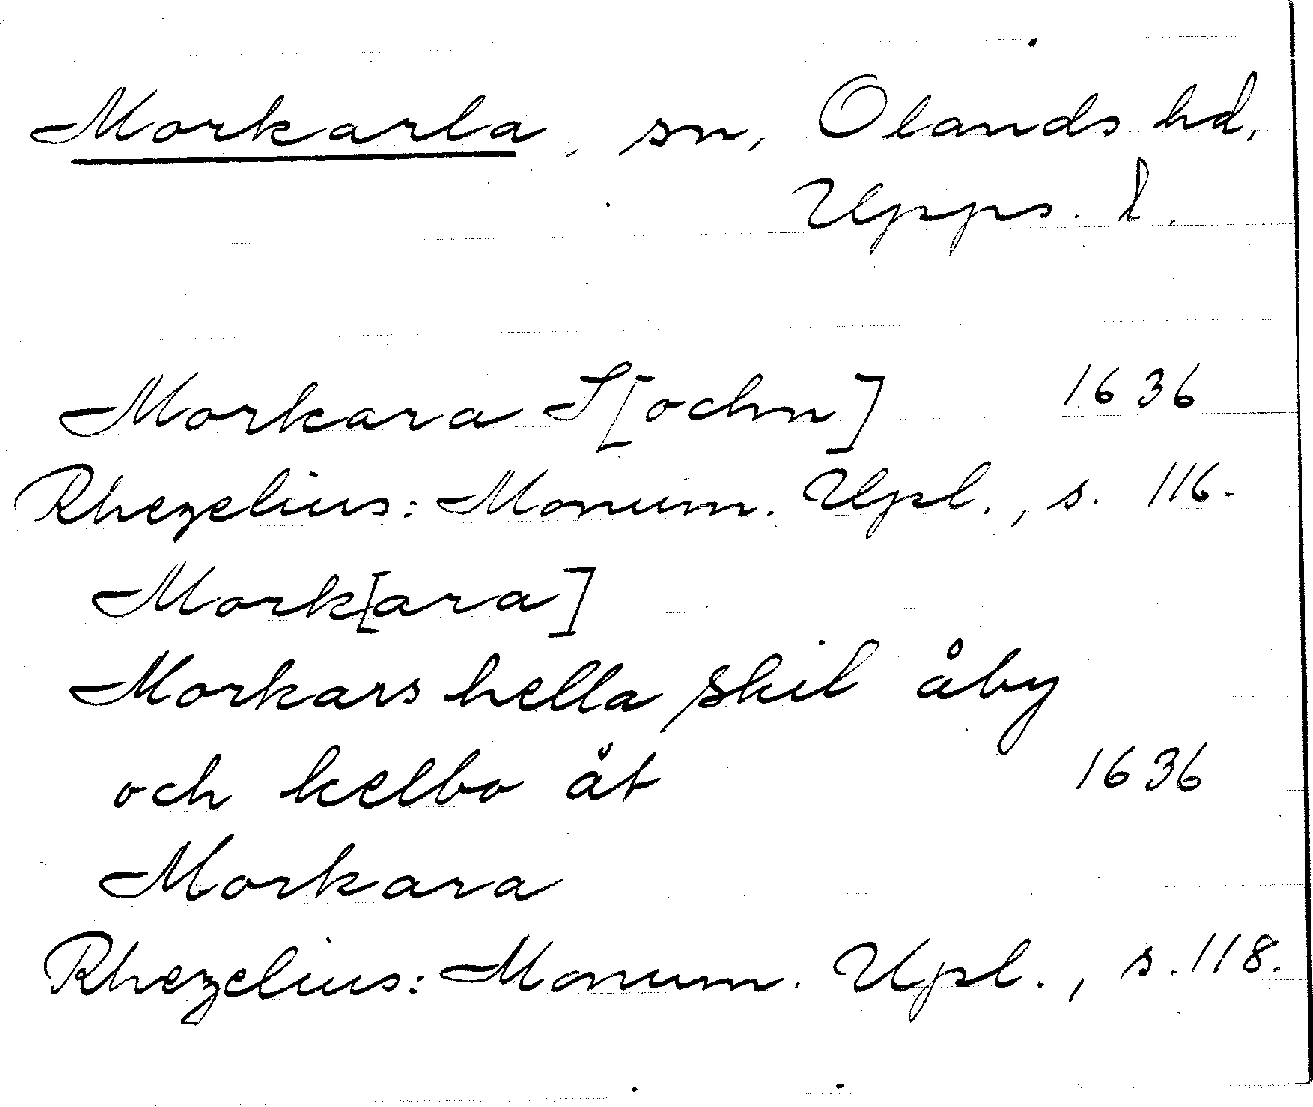 Morkarla, sn, Olands hd,
Upps. l.
Morkara S[ochn] 1636
Rhezelius: Monum. Upl., s. 116.
Mork[ara]
Morkars hella skil åby
och kelbo åt 1636
Morkara
Rhezelius: Monum. Upl., s. 118.